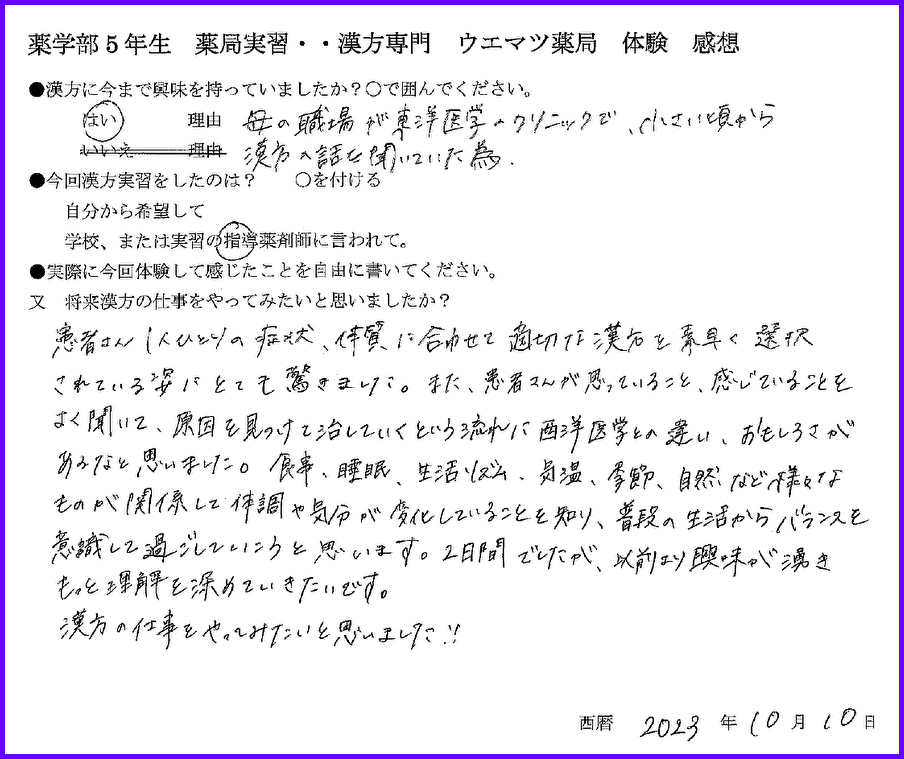 薬学部5年生　薬局実習・・漢方専門　ウエマツ薬局　体験　感想
●漢方に今まで興味を持っていましたか？○で囲んでください。
はい　理由　母の職場が東洋医学のクリニックで、小さい頃から
いいえ　理由　漢方の話を聞いていた為.
●今回漢方実習をしたのは？　○を付ける
自分から希望して
学校、または実習の指導薬剤師に言われて。
●実際に今回体験して感じたことを自由に書いてください。
又　将来漢方の仕事をやってみたいと思いましたか？
患者さん1人ひとりの症状、体質に合わせて適切な漢方を素早く選択
されている姿にとても驚きました。また、患者さんが思っていること、感じていることを
よく聞いて、原因を見つけて治していくという流れに西洋医学との違い、おもしろさが
あるなと思いました。食事、睡眠、生活リズム、気温、季節、自然など様々な
ものが関係して体調や気分が変化していることを知り、普段の生活からバランスを
意識して過ごしていこうと思います。2日間でしたが、以前より興味が湧き
もっと理解を深めていきたいです。
漢方の仕事をやってみたいと思いました!!
西暦　2023年10月10日